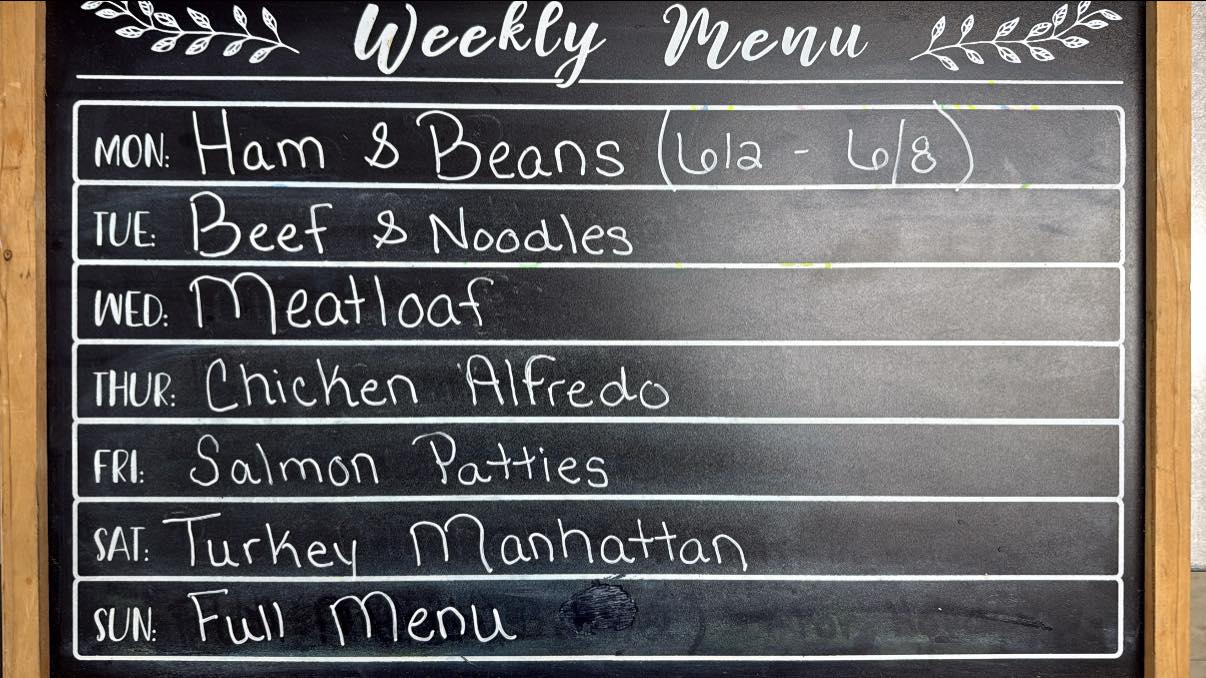 Weekly Menu
MON: Ham & Beans (6/2 - 6/8)
TUE: Beef & Noodles
WED: Meatloaf
THUR: Chicken Alfredo
FRI: Salmon Patties
SAT: Turkey Manhattan
SUN: Full Menu